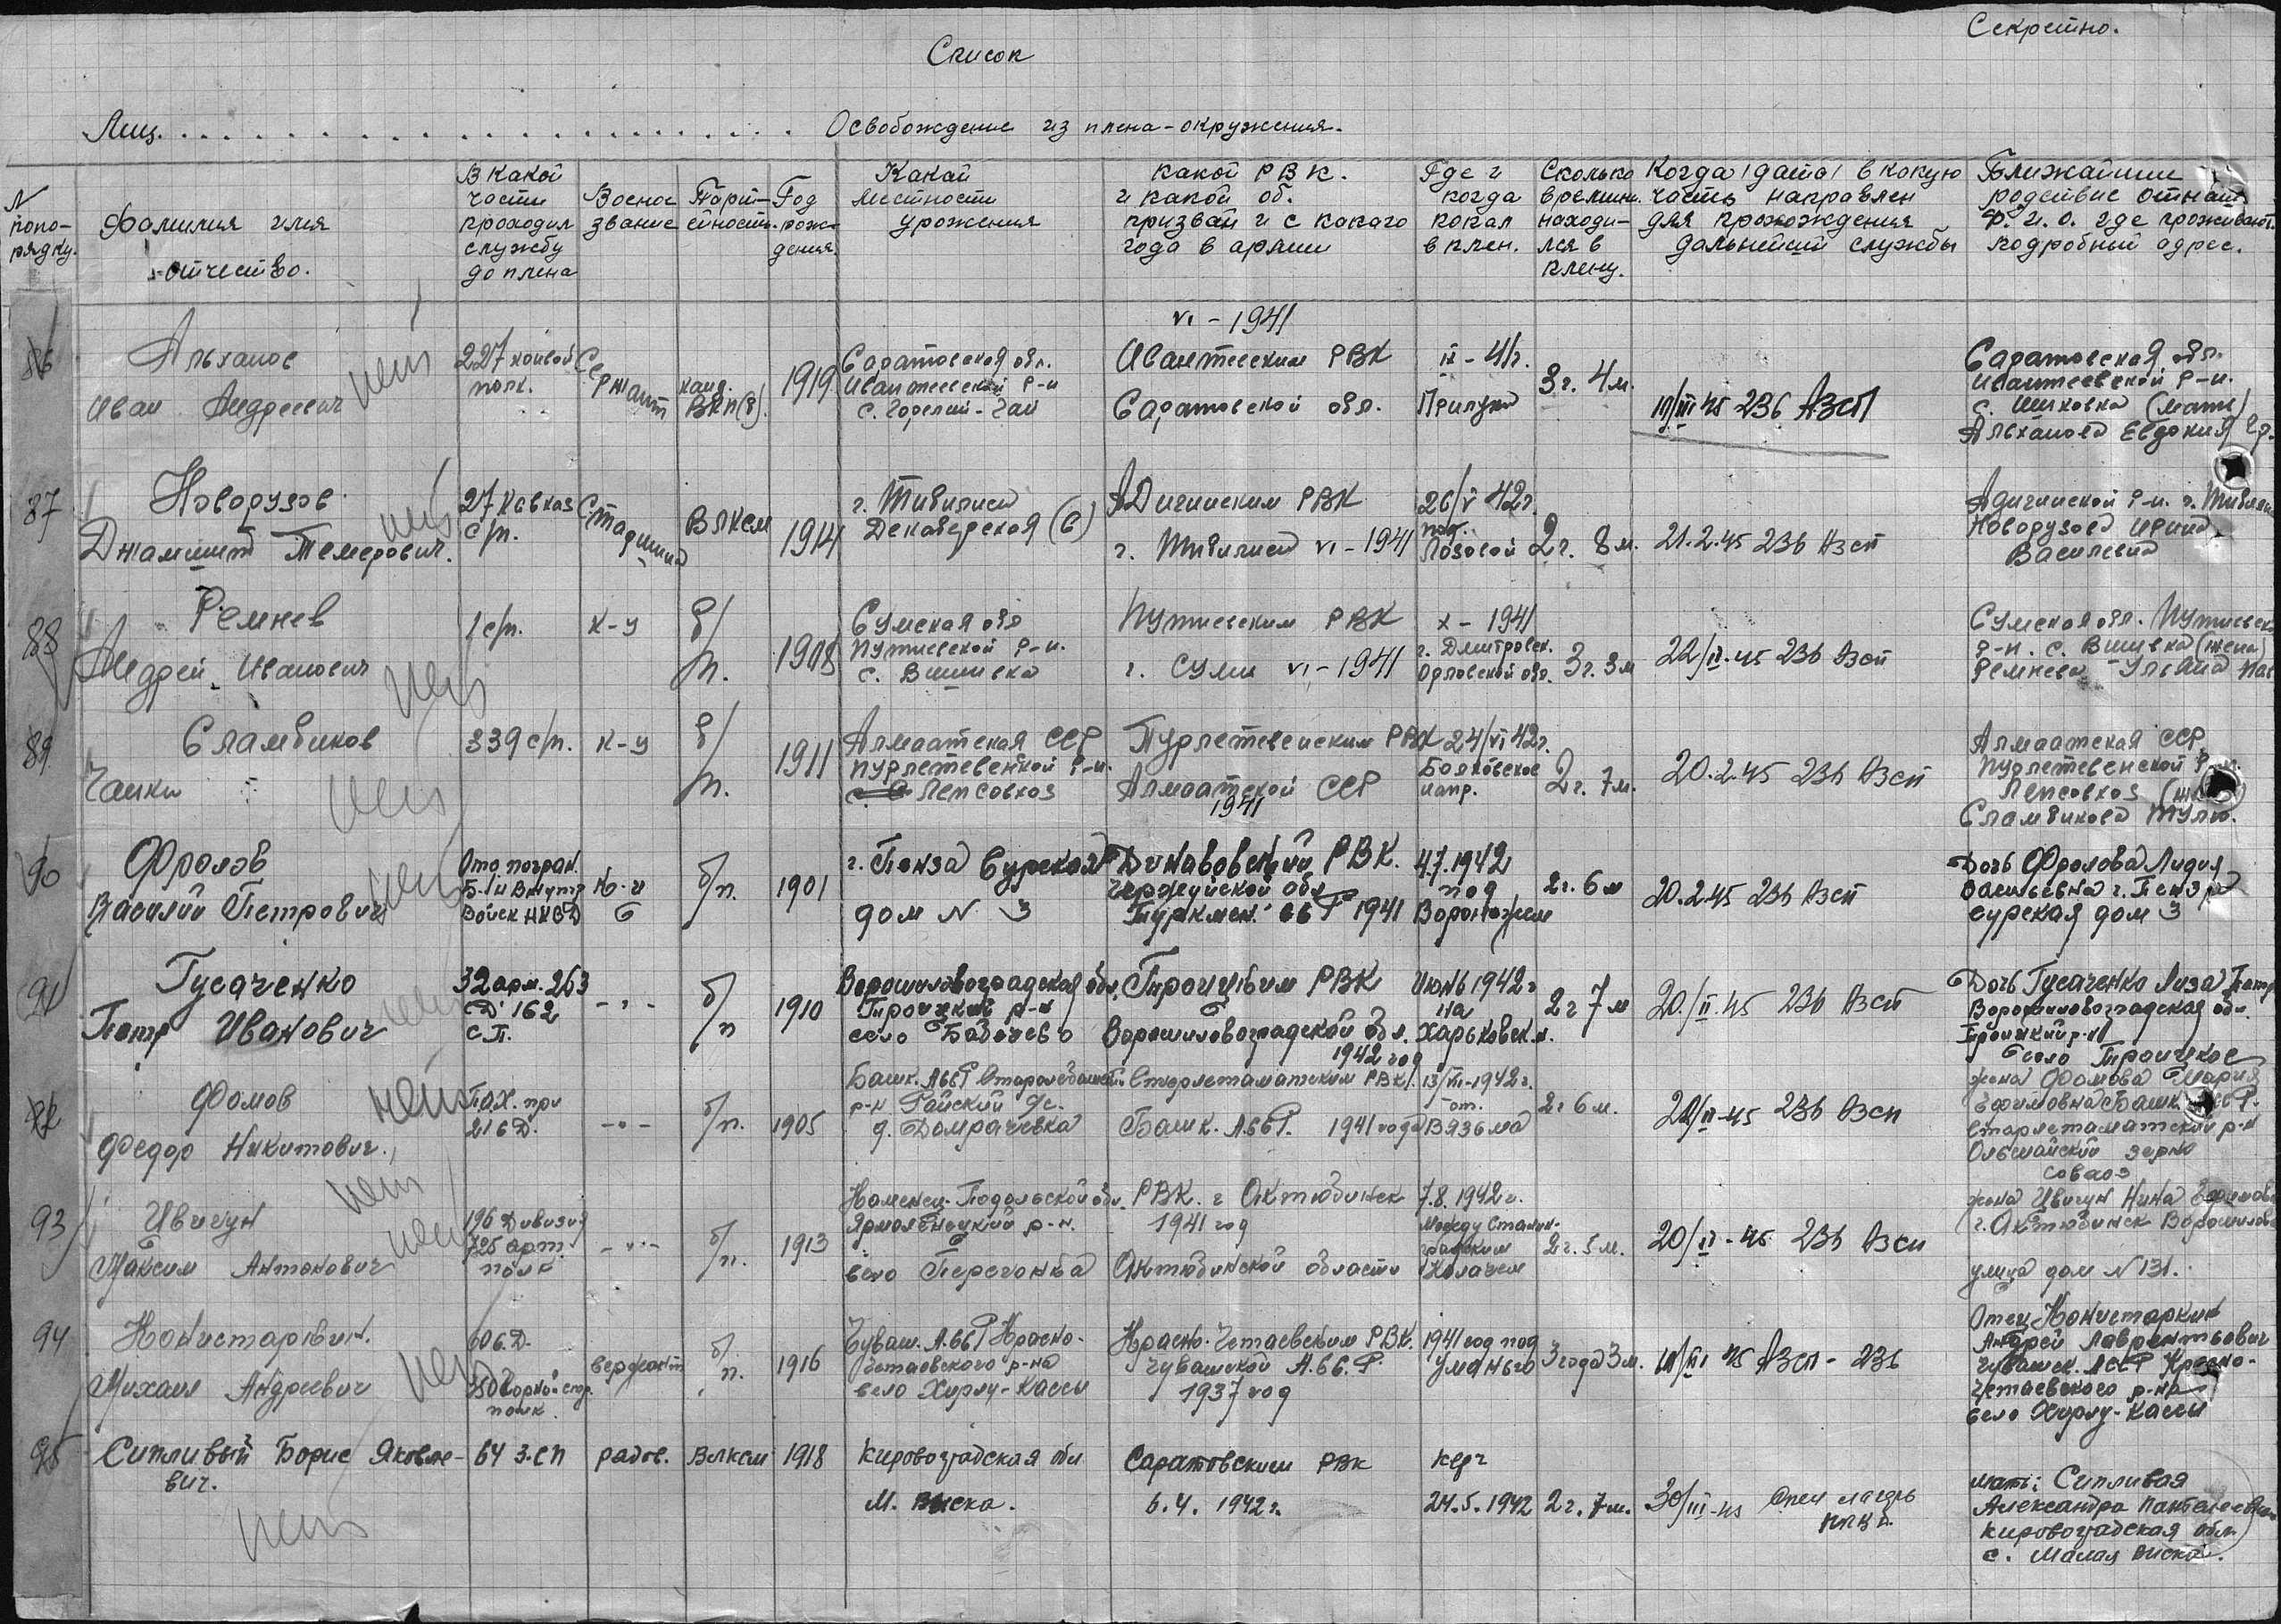 Секретно.
Список
Лиц. . . . . . . . . . . . . . . . . . . . . . Освобождение из плена-окружения.
N попо-рядку.
Фамилия имя отчество.
В какой части проходил службу до плена
Военое звание
Парт-ейность.
Год рож-дения
Какай местности урожения
какой РВК. и какой об. призван и с какаго года в армии
Где и когда попал в плен.
Сколько времини находи-лся в плену.
Когда /дата/ в какую часть направлен для прохождения дальнейший службы
Ближайшии родствие отнош. Ф.И.О. где проживает. подробный адрес.
86
Альханов
Иван Андреевич
нет
227 конвой
полк.
Сержант
канд.
ВКП(б).
1919
Саратовская обл.
Ивантеевский р-н
с. Горелий-Гай
VI - 1941
Ивантеевским РВК
Саратовской обл.
IX - 41г.
Прилуки
3 г. 4 м.
III 45 236 АЗСП
Саратовская обл.
Ивантеевской р-н.
(мать)
Альханова Евдокия Гр.
87
Новорузов
Джамшит Темерович.
нет
27 Кавказ
с/п.
Старшина
Влксм
1914
г. Тибилиси
РВК
г. Тибилиси VI - 1941
26/V 42г.
Лозовой
2 г. 8 м.
21.2.45 236 Азсп
р-н. г.
Новорузова
88
Ремнев
Андрей Иванович
нет
1 с/п.
к-у
б/
п.
1918
Сумская обл
Путивльской р-н.
с. Вшивка
Путивським РВК
г. Суми VI - 1941
X - 1941
г. Дмитровск.
Орловской обл.
3 г. 3 м
22/II.45 236 Азсп
Сумская обл.
р-н. с. Вшивка (жена)
Ремнева
89
Сламбиков
Чанки
нет
339 с/п.
к-у
б/
п.
1911
Алмаатская ССР
р-н.
Лепсовхоз
РВК
Алмаатской ССР
1941
24/VI 42г.
напр.
2 г. 7 м.
20.2.45 236 Азсп
Алмаатская ССР
Лепсовхоз
Сламбикова
90
Фролов
Василий Петрович
нет
Ото погран.
Б. и Внутр
Войск НКВД
б/
п.
1901
г. Пенза Сурская
дом N 3
РВК.
обл
Туркмен. ССР 1941
4.7.1942
под
Воронежем
2 г. 6 м
20.2.45 236 Азсп
Дочь Фролова Лидия
Васильевна г. Пенза
сурская дом 3
91
Гусаченко
Петр Иванович
нет
32 арм. 253
Д 162
С.П.
- " -
б/
п
1910
Ворошиловоградская обл.
Троицкий р-н
село Бабичево
Троицким РВК
Ворошиловоградской обл.
1942 год
Июнь 1942 г
на
Харьковск.н.
2 г 7 м
20/II.45 236 Азсп
Дочь Гусаченко Лиза Петр
Ворошиловоградская обл.
Троицкий р-н
село Троицкое
92
Фомов
Федор Никитович.
нет
216 Д.
- " -
б/
п.
1905
Башк. АССР
д. Домрачевка
Стерлетаматским РВК
Башк. АССР. 1941 года
13/VII-1942 г.
ст.
Вязьма
2 г 6 м.
20/II-45 236 Азсп
жена Фомова Мария
Ефимовна Башк. АССР.
Стерлетаматский р-н
зерно
совхоз
93
Ивичун
Максим Антонович
нет
нет
196 Дивизия
725 арт.
полк
- " -
б/
п.
1913
Каменец-Подольской обл.
Ярмолинецкий р-н.
село Перегонба
РВК. г Октюбинск
1941 год
Октюбинской области
7.8.1942 г.
Между Сталин-
градским
Калачем
2 г. 5 м.
20/II-45 236 Азсп
жена Ивичун Нина
г. Октюбинск
улица дом N 131.
94
Конистаркин.
Михаил Андреевич
нет
60 С.Д.
350
полк
Сержант
б.
п.
1916
Чуваш. АССР Красно-
Четаевского р-на
село Хирлу-Кассы
Красно-Четаевским РВК.
Чувашской А.ССР.
1937 год
1941 год под
Уманью
3 года 3 м.
III 45 Азсп - 236
Отец Конистаркин
Андрей Лаврентьович
Чувашск. АССР Красно-
Четаевского р-на
село Хирлу-Кассы
95
Сипливый Борис Яковле-
вич.
нет
64 З.СП
рядов.
Влксм
1918
Кировоградская обл
М. Виска.
Саратовским РВК
6.4. 1942 г.
керч
24.5.1942
2 г. 7 м.
30/III-45 Спец лагерь
НКВД
мать: Сипливая
Александра Пантелеевна
Кировоградская обл.
с. Малая Виска.